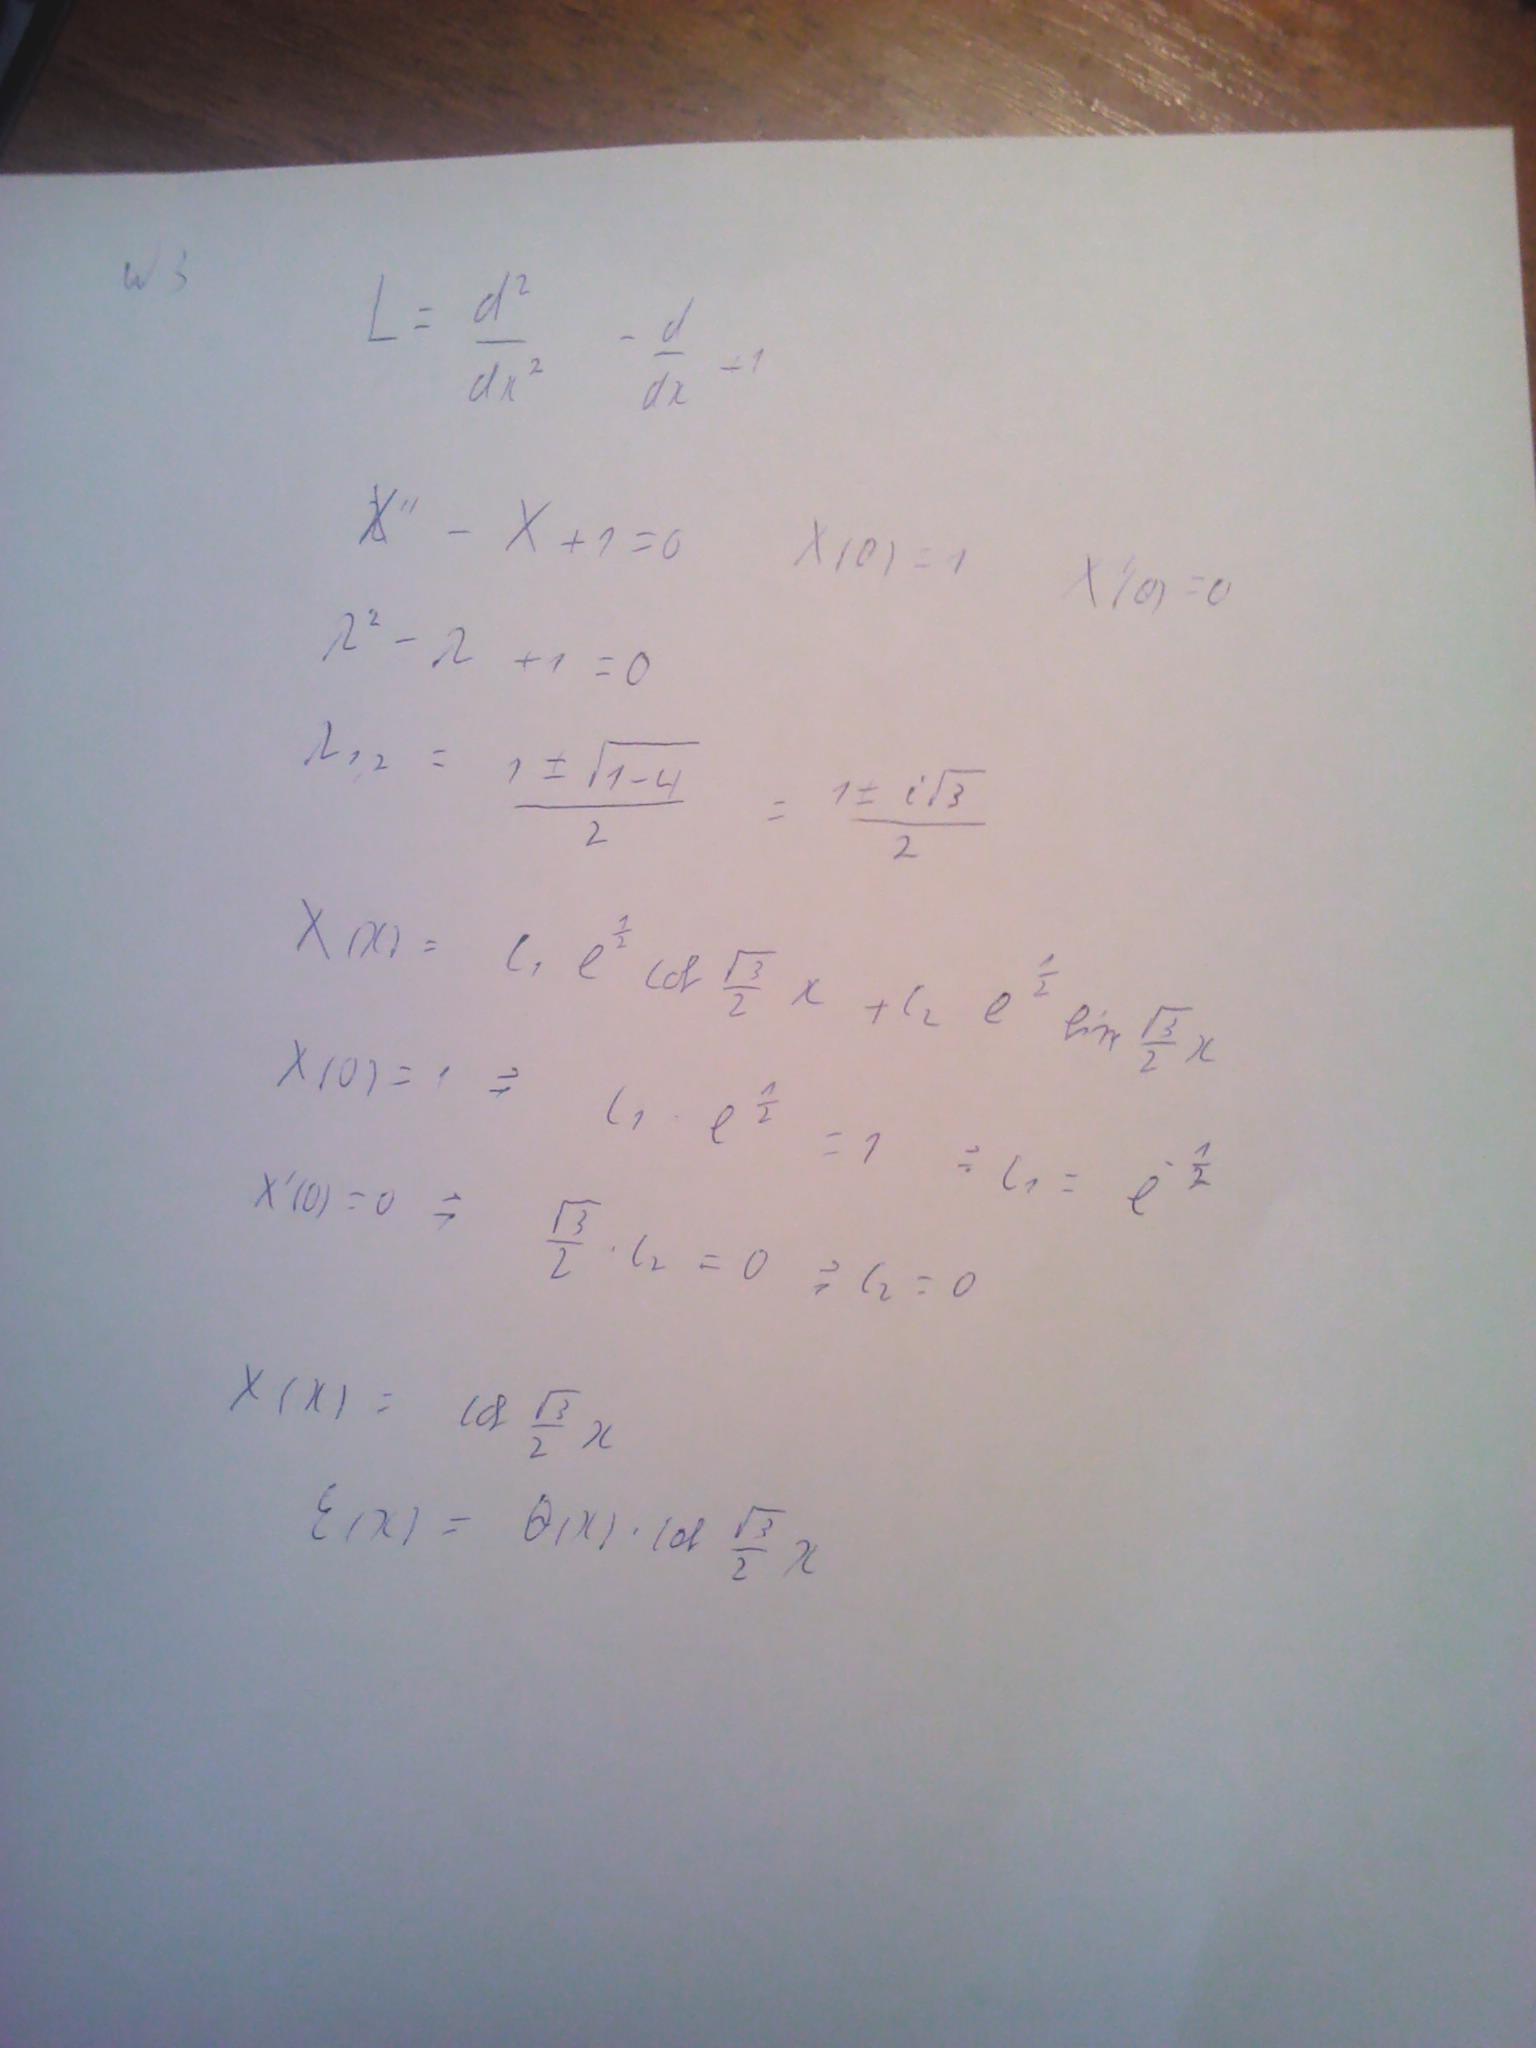 N3
L = d²/dx² - d/dx + 1
X'' - X + 1 = 0 X(0) = 1 X'(0) = 0
λ² - λ + 1 = 0
λ₁,₂ = (1 ± √(1-4))/2 = (1 ± i√3)/2
X(x) = C₁ e^(1/2) cos √3/2 x + C₂ e^(1/2) sin √3/2 x
X(0) = 1 ⇒ C₁ · e^(1/2) = 1 ⇒ C₁ = e^(-1/2)
X'(0) = 0 ⇒ √3/2 · C₂ = 0 ⇒ C₂ = 0
X(x) = cos √3/2 x
ℰ(x) = θ(x) · cos √3/2 x